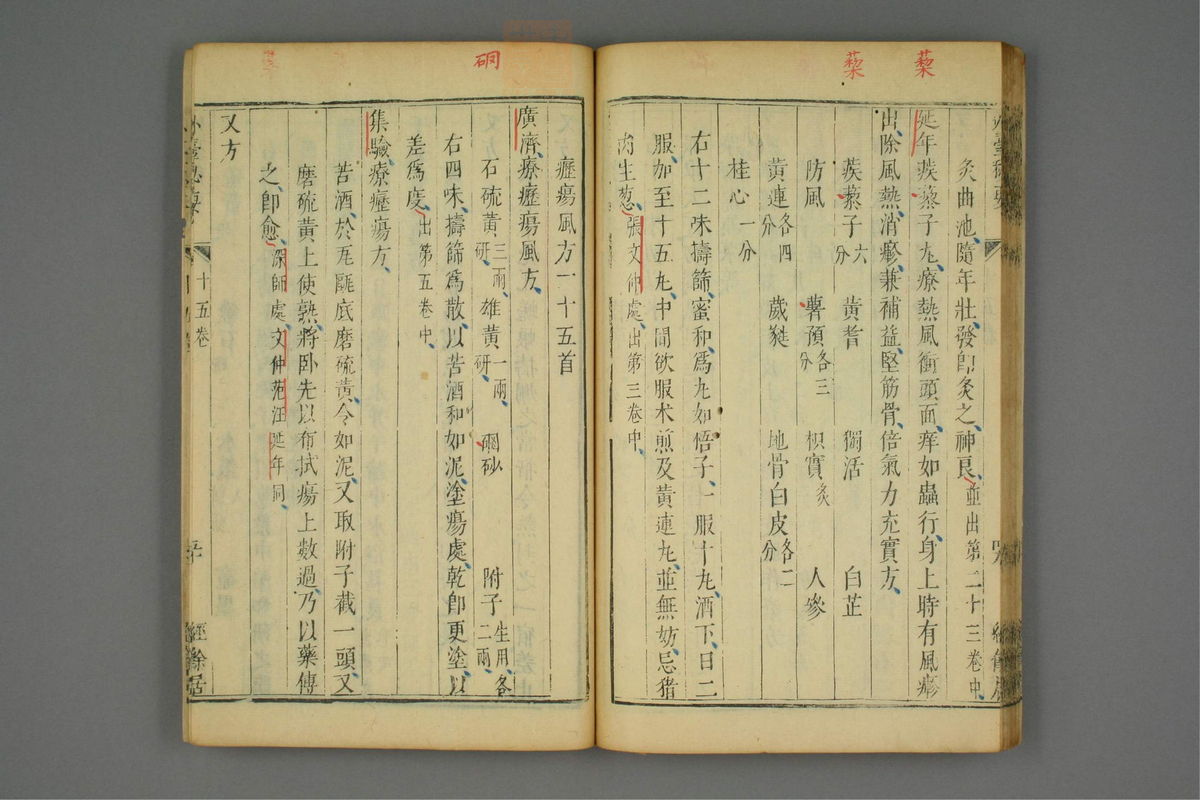 蔾
蔾
灸曲池隨年壯發卽灸之神良並出第二十三卷中
延年蒺蔾子丸療熱風衝頭面痒如蟲行身上時有風㾦
出除風熱消㾦兼補益堅筋骨倍氣力充實方
蒺蔾子六分 黃耆 獨活 白芷
防風 薯預各三分 枳實炙 人參
黃連各四分 葳蕤 地骨白皮各二分
桂心一分
右十二味擣篩蜜和爲丸如梧子一服十丸酒下日二
服加至十五丸中間欲服术煎及黃連丸並無妨忌猪
肉生葱張文仲處出第三卷中
硇
癧瘍風方一十五首
廣濟療癧瘍風方
石硫黃三兩研 雄黃一兩研 硇砂 附子生用各二兩
右四味擣篩爲散以苦酒和如泥塗瘍處乾卽更塗以
差爲度出第五卷中
集驗療癧瘍方
苦酒於瓦甌底磨硫黃令如泥又取附子截一頭又
磨硫黃上使熟將卧先以布拭瘍上數過乃以藥傅
之卽愈深師處文仲范汪延年同
又方
十五卷
經餘居